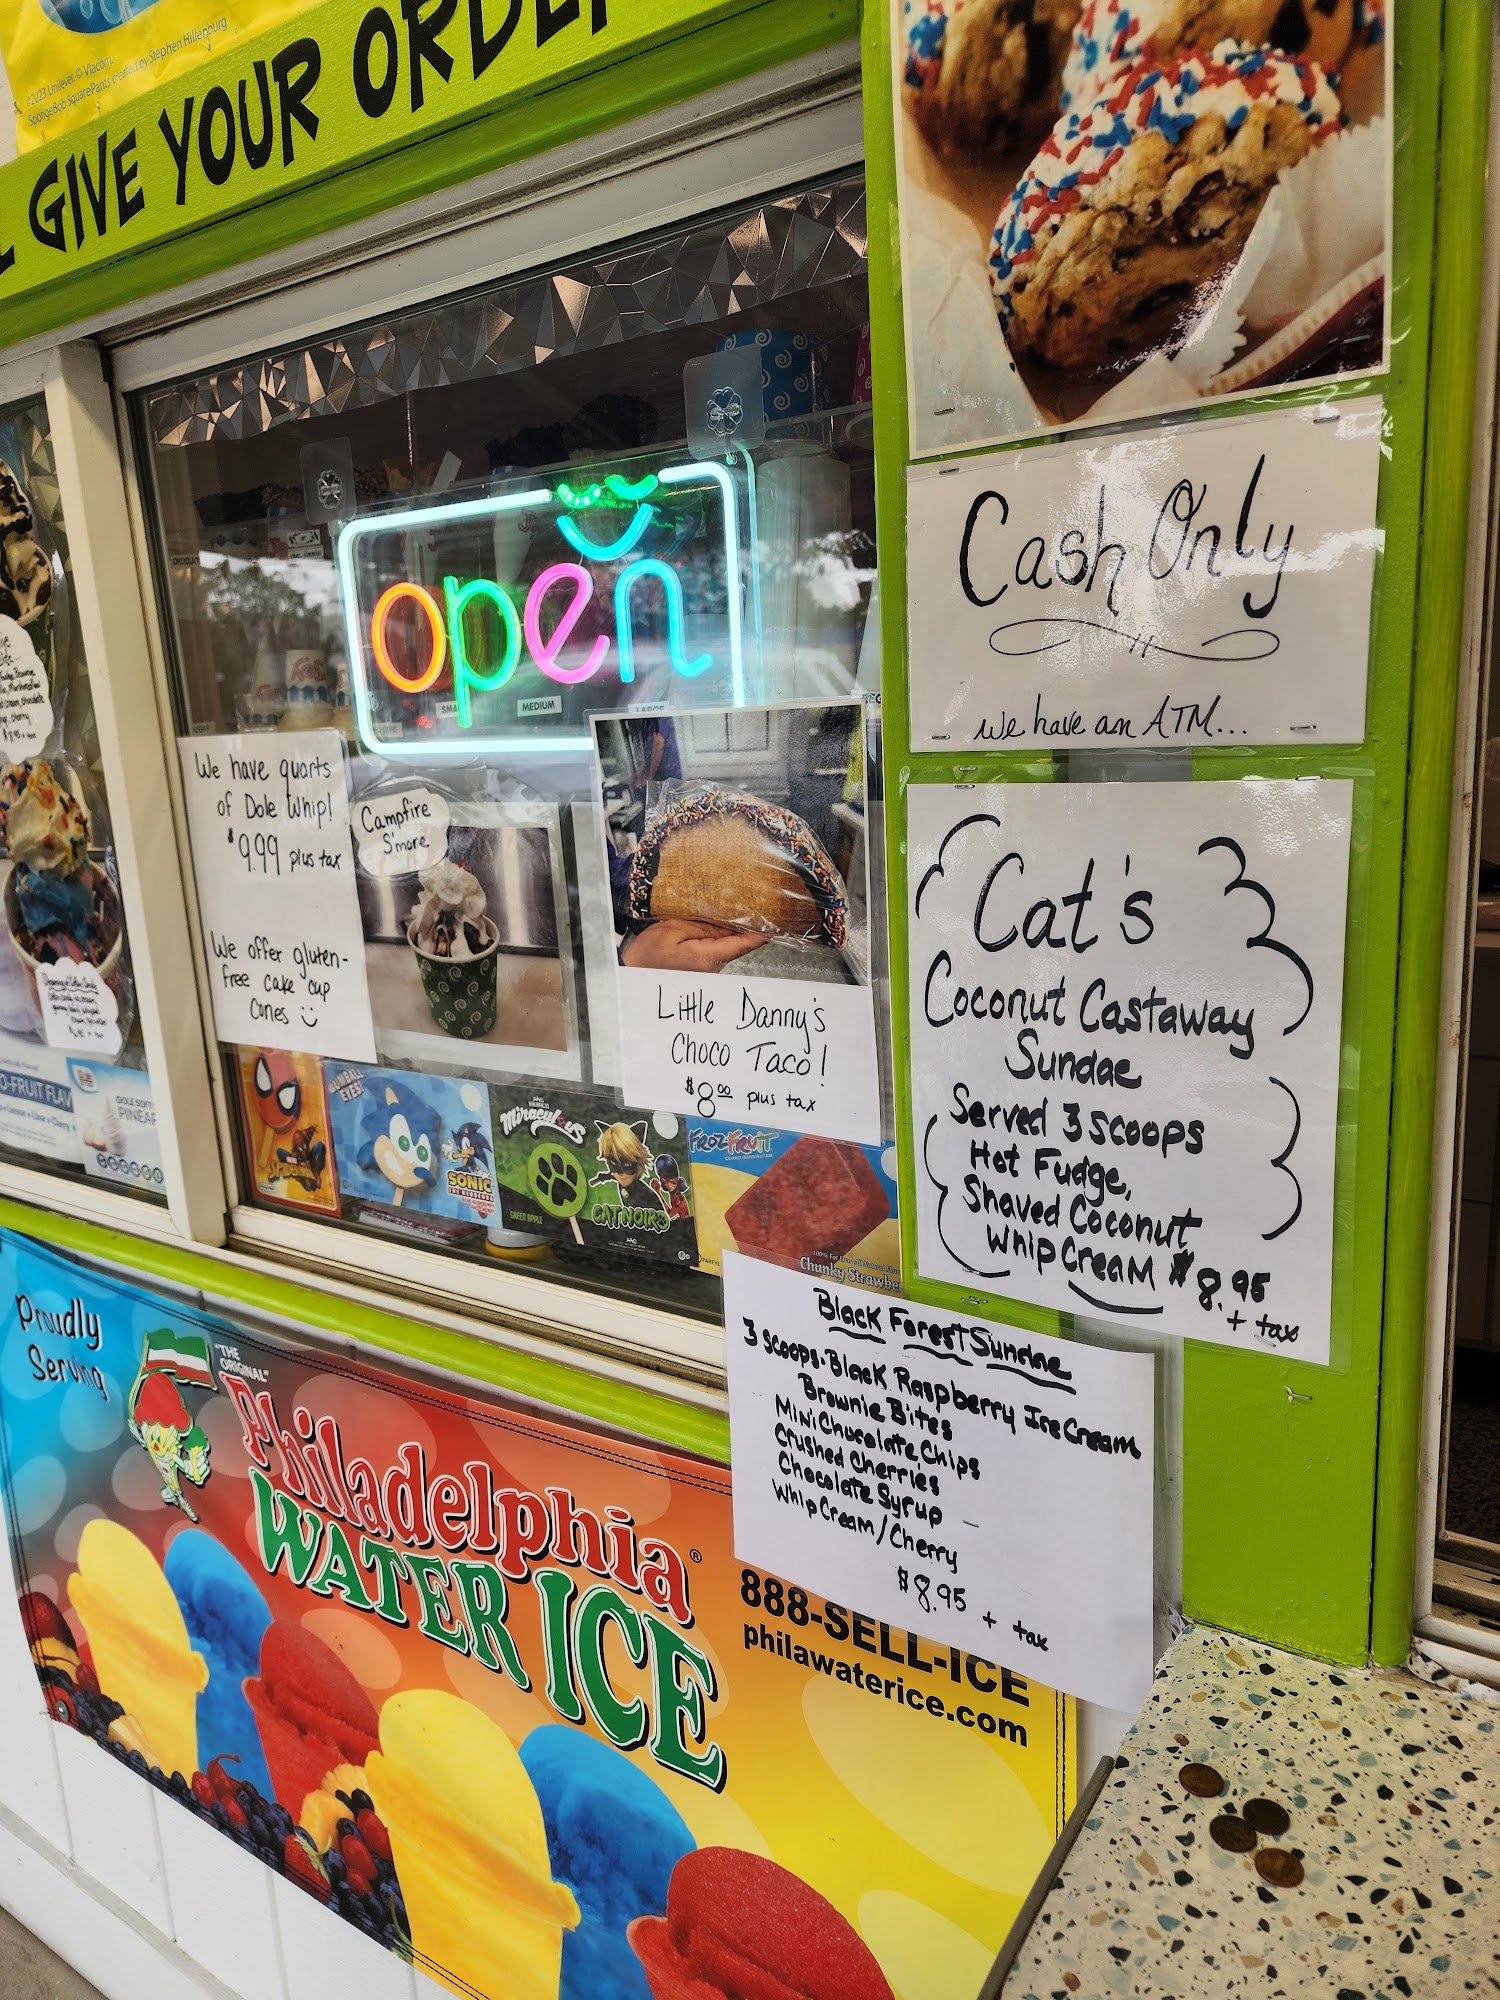 ©2023 Unilever. © Viacom.
SpongeBob SquarePants created by Stephen Hillenburg
GIVE YOUR ORDER
open
MEDIUM
LARGE
We have quarts
of Dole Whip!
$9.99 plus tax
We offer gluten-
free cake cup
Cones
Campfire
S'more
Little Danny's
Choco Taco!
$8.00 plus tax
Cash Only
We have an ATM...
Cat's
Coconut Castaway
Sundae
Served 3 scoops
Hot Fudge,
Shaved Coconut
Whip Cream $8.95
+ tax
Black Forest Sundae
3 scoops-Black Raspberry Ice Cream
Brownie Bites
Mini Chocolate Chips
Crushed Cherries
Chocolate Syrup
Whip Cream/Cherry
$8.95 + tax
GUMBALL
EYES!
SONIC
THE HEDGEHOG
Miraculous
GREEN APPLE
CAT NOIR
FROZFRUIT
Chunky Strawbe
SPIDER-MAN
O-FRUIT FLAV
Dole
DOLE SOFT
PINEAP
Proudly
Serving
"THE
ORIGINAL"
Philadelphia
WATER ICE
888-SELL-ICE
philawaterice.com